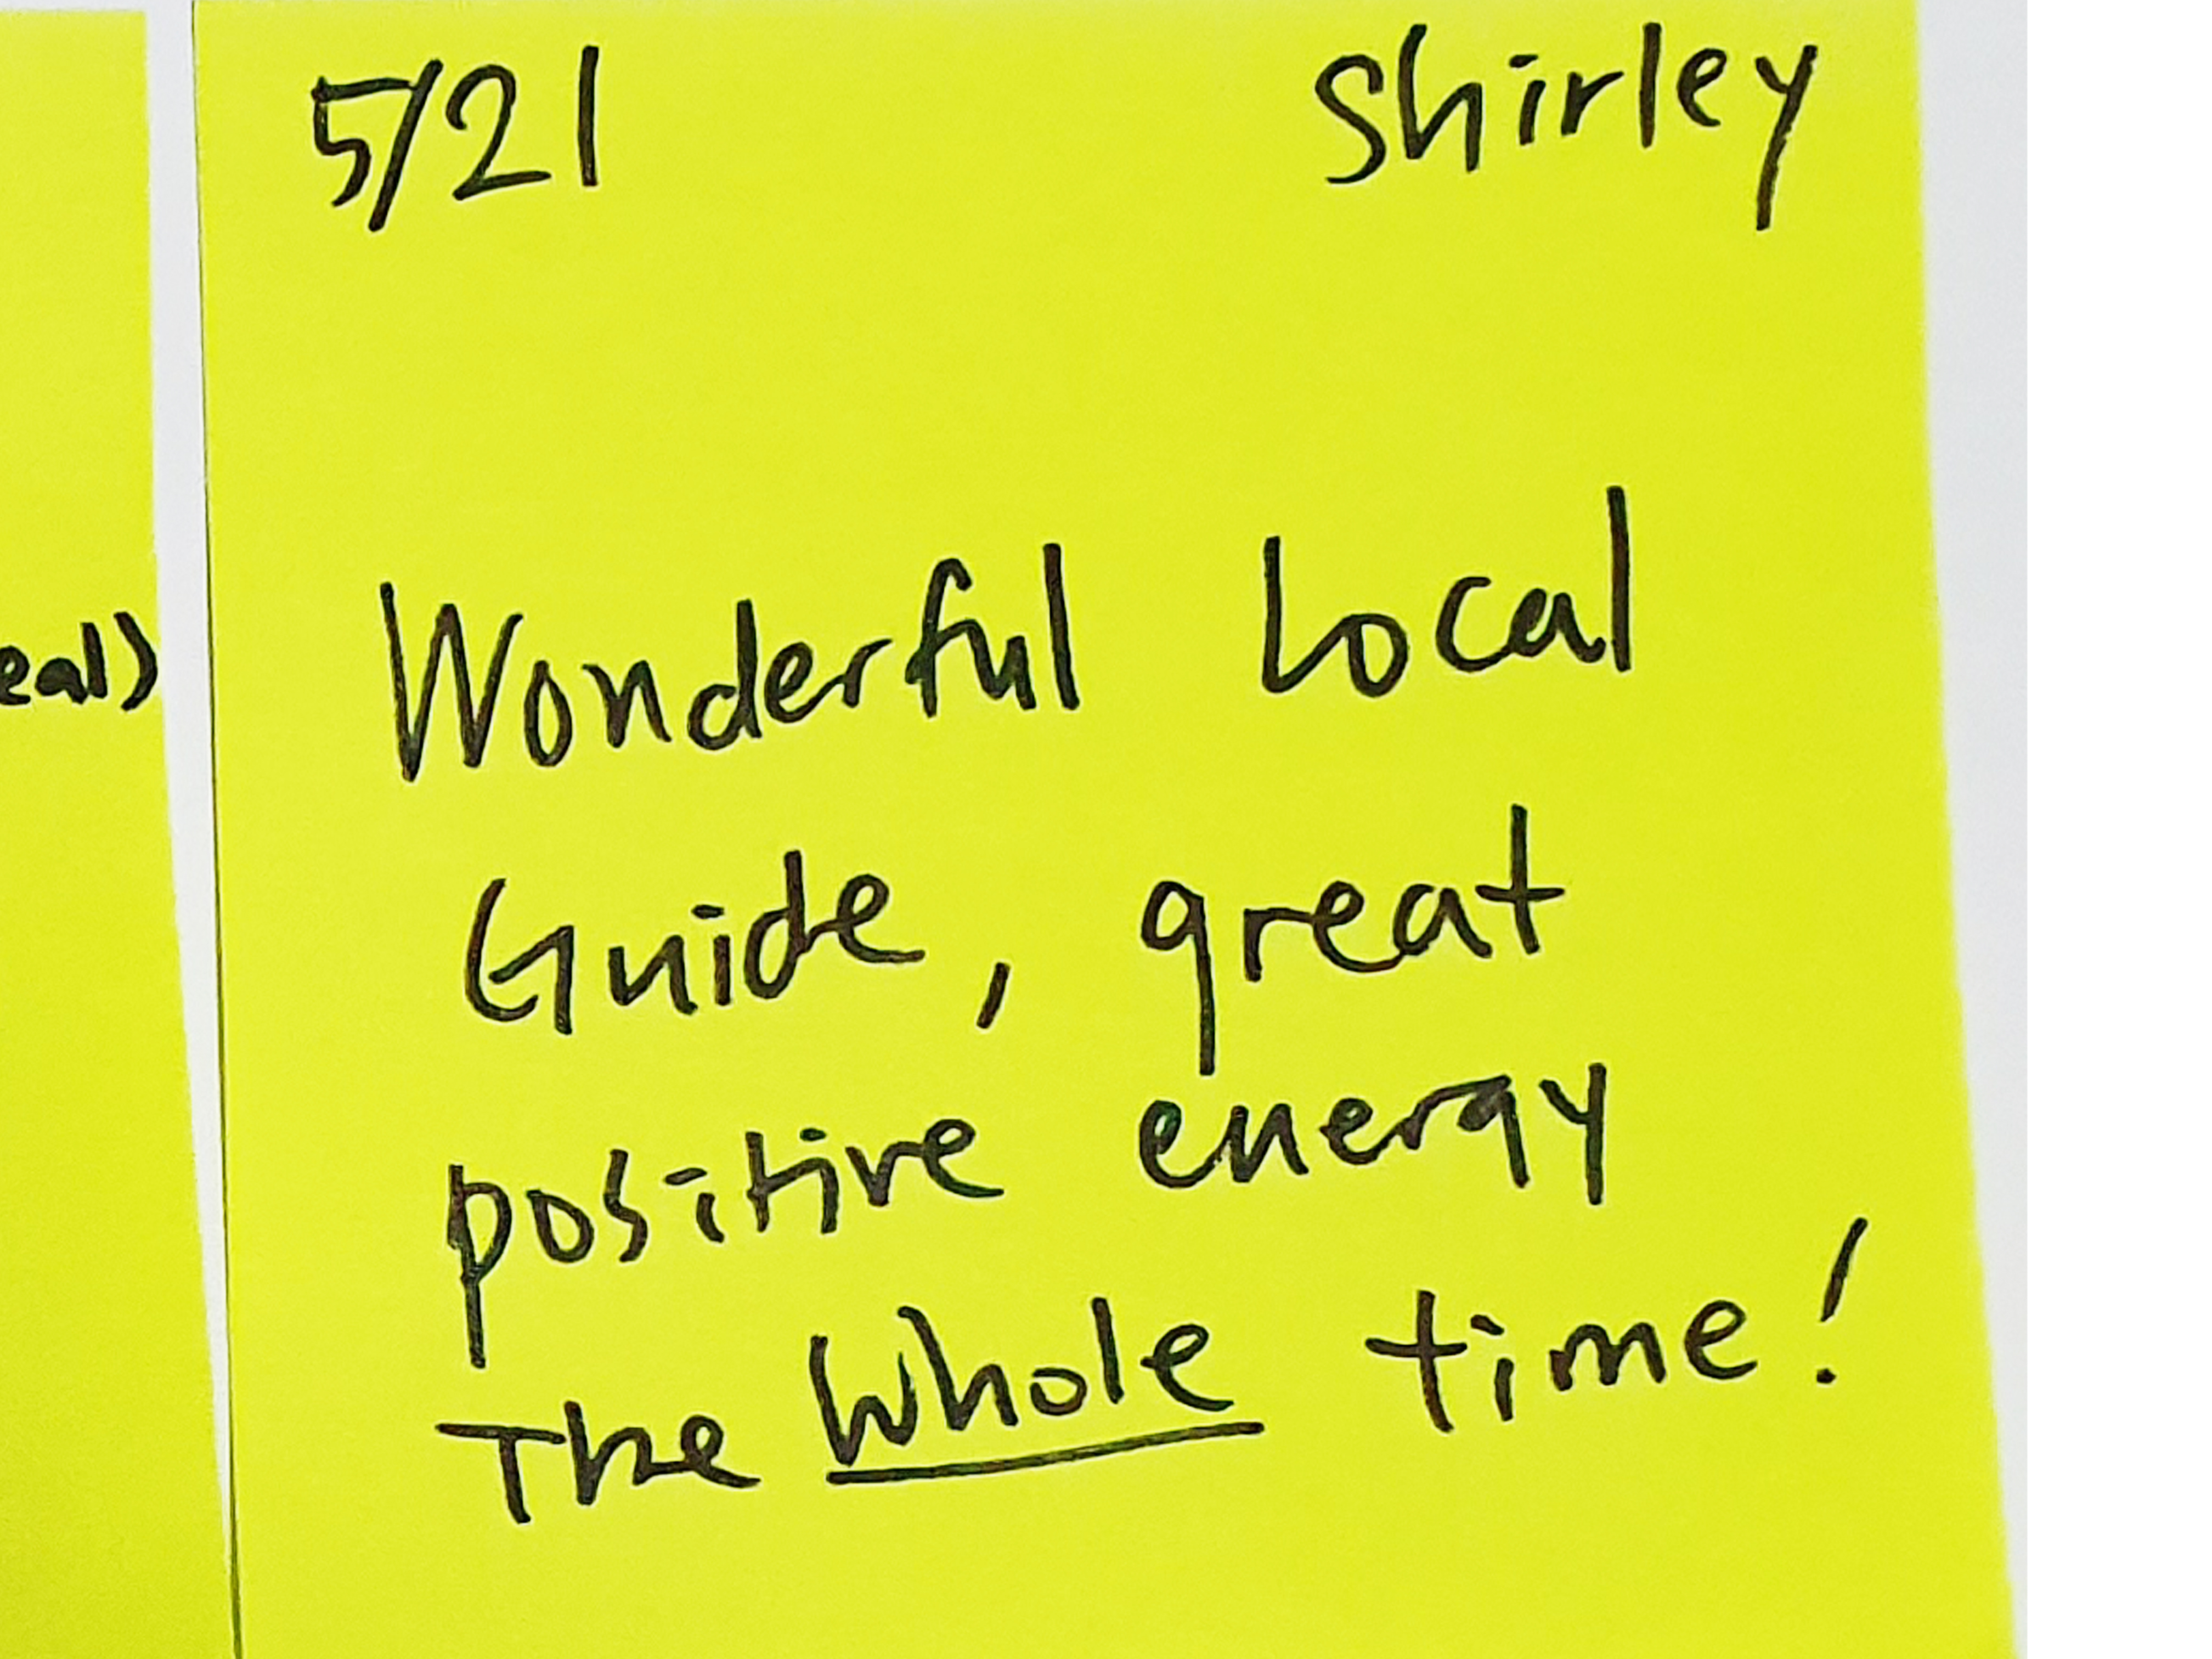 5/21 Shirley
eal)
Wonderful Local
Guide, great
positive energy
The Whole time!